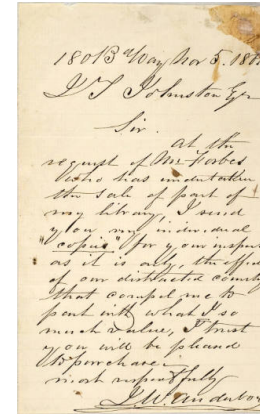 180 B Way Nov 5. 186
J T Johnston Esqr
Sir.
At the
request of Mr Forbes
who has undertaken
the sale of part of
my library, I send
you my individual
"copies" for your
as it is only, the effect
of our distracted country
that compel me to
part with what I so
much value, I trust
you will be pleased
to purchase
most respectfully
J. W.